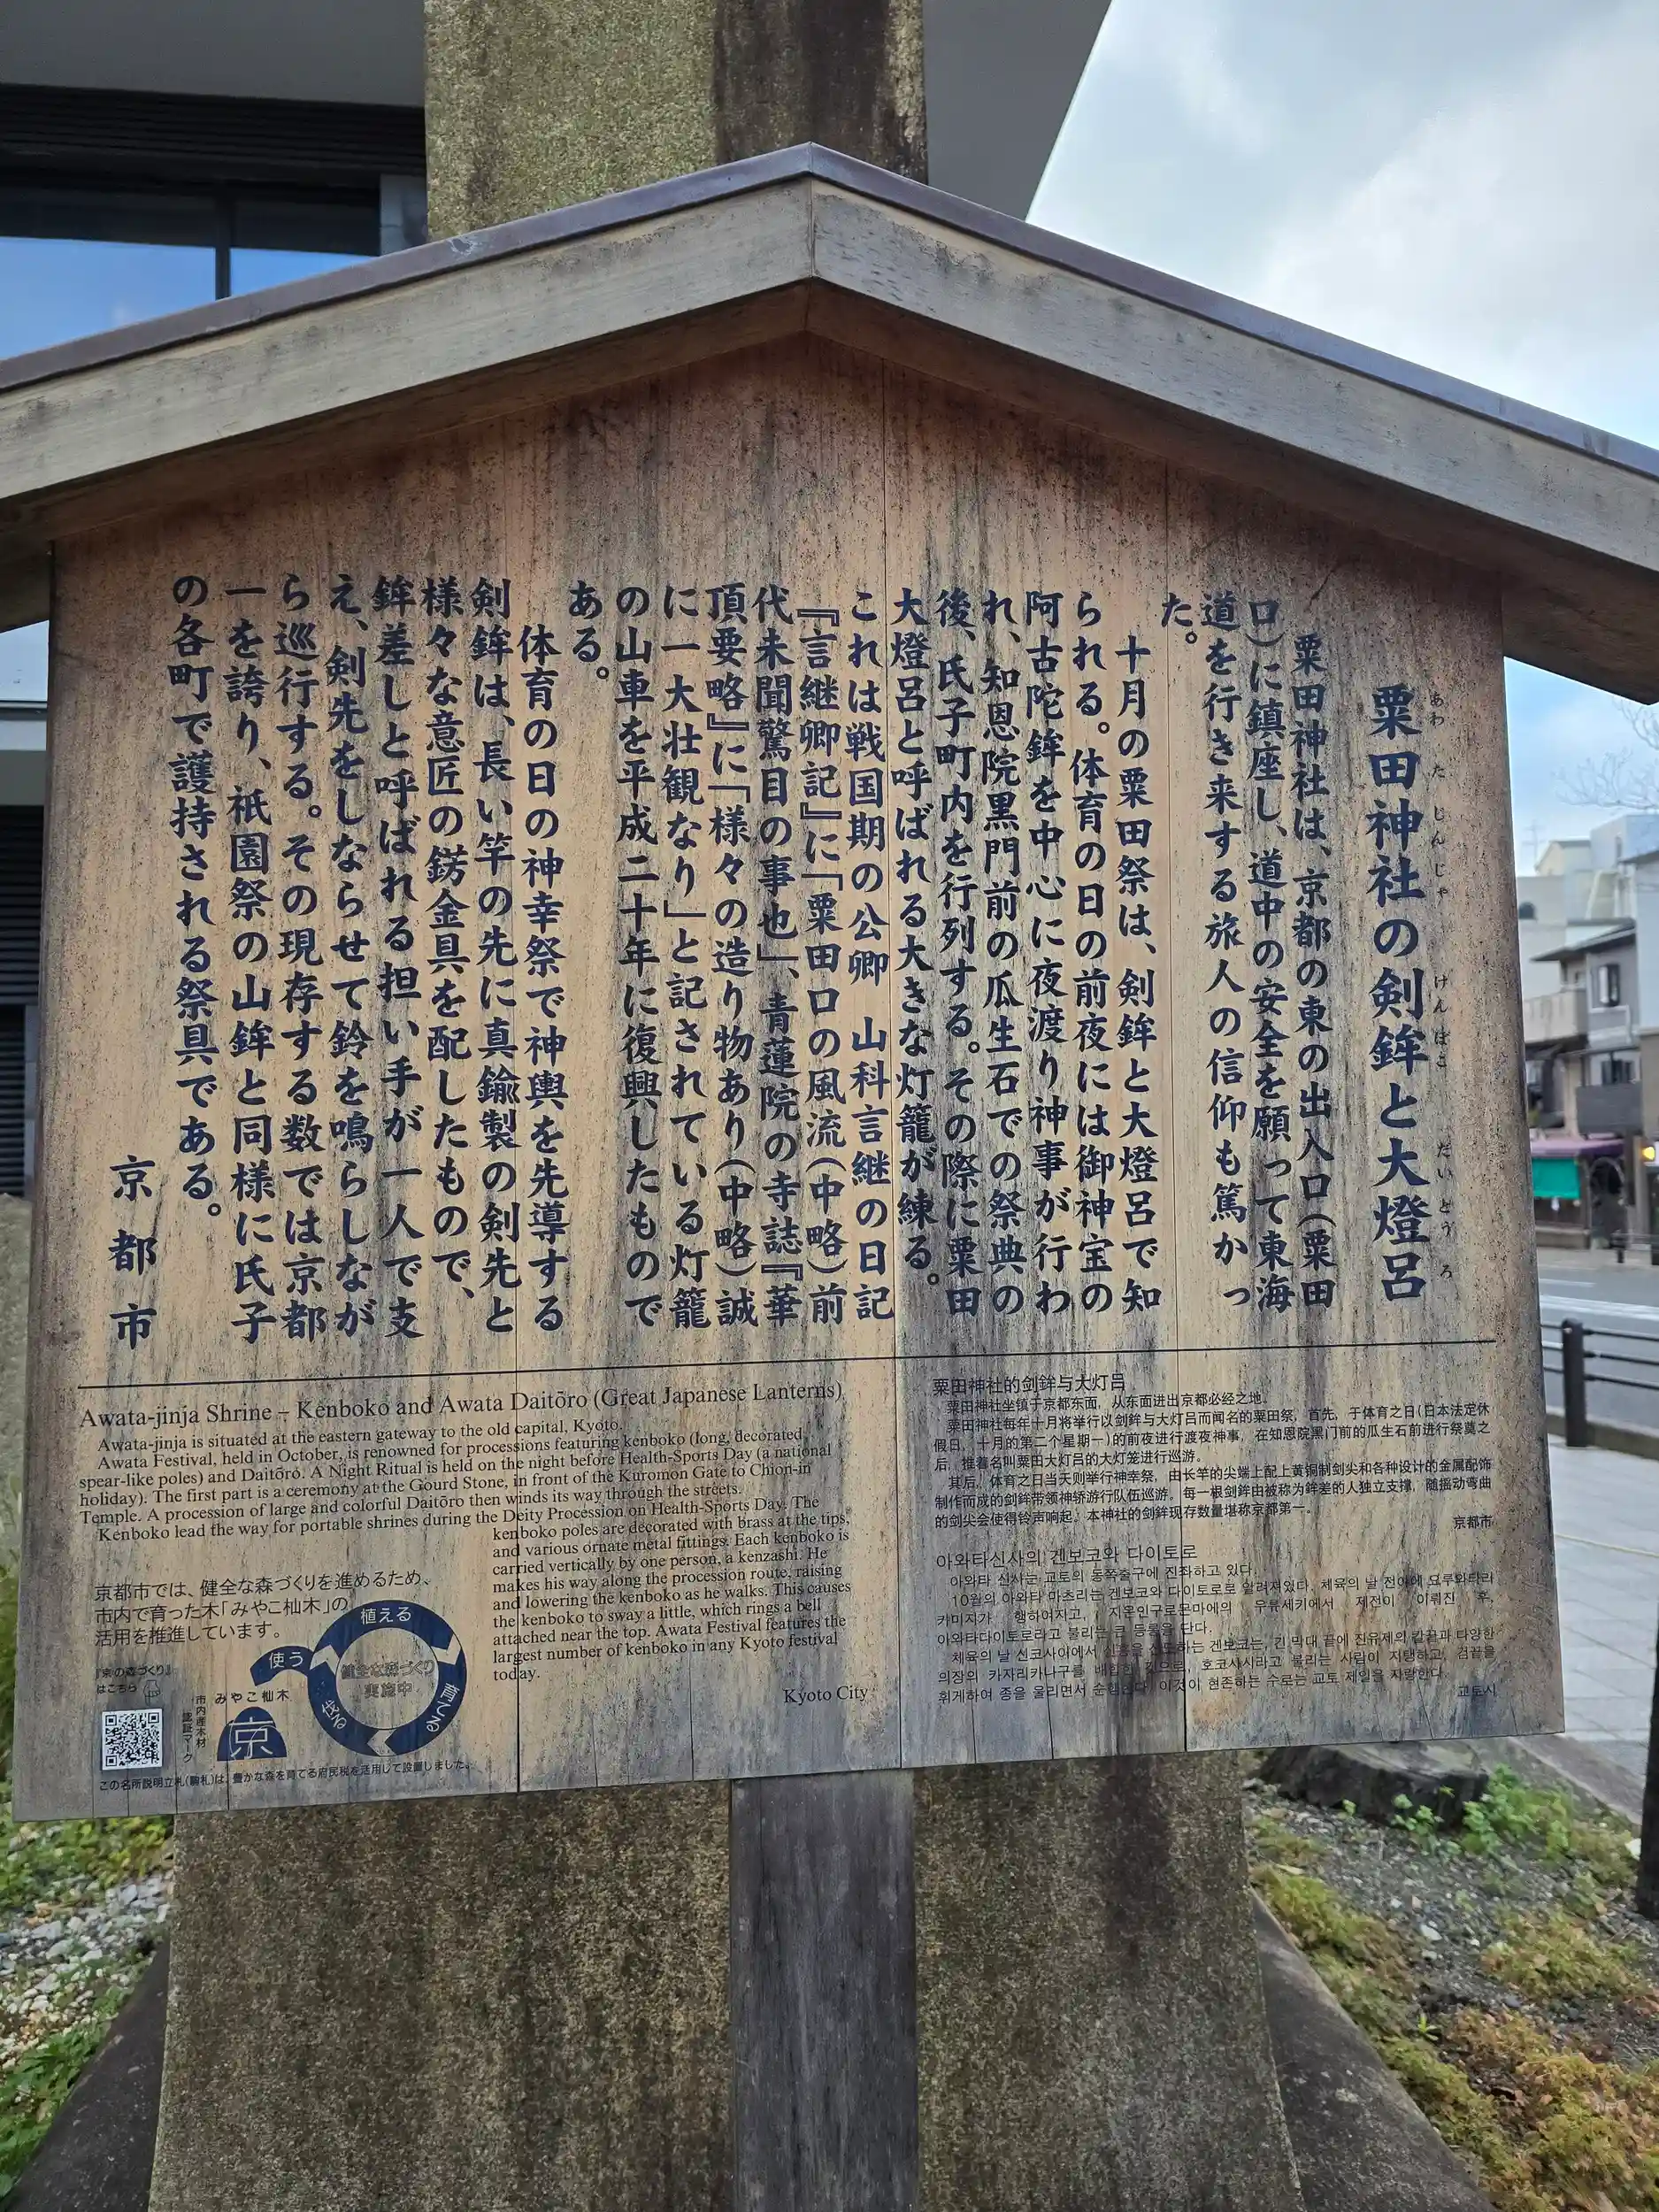 粟田神社の剣鉾と大燈呂
あわ た じんじゃ けんぼこ だいとう ろ
粟田神社は、京都の東の出入口(粟田
口)に鎮座し、道中の安全を願って東海
道を行き来する旅人の信仰も篤かっ
た。
十月の粟田祭は、剣鉾と大燈呂で知
られる。体育の日の前夜には御神宝の
阿古陀鉾を中心に夜渡り神事が行わ
れ、知恩院黒門前の瓜生石での祭典の
後、氏子町内を行列する。その際に粟田
大燈呂と呼ばれる大きな灯籠が練る。
これは戦国期の公卿 山科言継の日記
『言継卿記』に「粟田口の風流(中略)前
代未聞驚目の事也」、青蓮院の寺誌『華
頂要略』に「様々の造り物あり(中略)誠
に一大壮観なり」と記されている灯籠
の山車を平成二十年に復興したもので
ある。
体育の日の神幸祭で神輿を先導する
剣鉾は、長い竿の先に真鍮製の剣先と
様々な意匠の錺金具を配したもので、
鉾差しと呼ばれる担い手が一人で支
え、剣先をしならせて鈴を鳴らしなが
ら巡行する。その現存する数では京都
一を誇り、祇園祭の山鉾と同様に氏子
の各町で護持される祭具である。
京都市
Awata-jinja Shrine – Kenboko and Awata Daitōro (Great Japanese Lanterns)
Awata-jinja is situated at the eastern gateway to the old capital, Kyoto.
Awata Festival, held in October, is renowned for processions featuring kenboko (long, decorated
spear-like poles) and Daitōro. A Night Ritual is held on the night before Health-Sports Day (a national
holiday). The first part is a ceremony at the Gourd Stone, in front of the Kuromon Gate to Chion-in
Temple. A procession of large and colorful Daitōro then winds its way through the streets.
Kenboko lead the way for portable shrines during the Deity Procession on Health-Sports Day. The
kenboko poles are decorated with brass at the tips,
and various ornate metal fittings. Each kenboko is
carried vertically by one person, a kenzashi. He
makes his way along the procession route, raising
and lowering the kenboko as he walks. This causes
the kenboko to sway a little, which rings a bell
attached near the top. Awata Festival features the
largest number of kenboko in any Kyoto festival
today.
Kyoto City
京都市では、健全な森づくりを進めるため、
市内で育った木「みやこ杣木」の
活用を推進しています。
『京の森づくり』
はこちら
市内産木材
認証マーク
みやこ杣木
京
使う
植える
育てる
伐る
健全な森づくり
実施中
この名所説明立札(駒札)は、豊かな森を育てる府民税を活用して設置しました。
粟田神社的剑鉾与大灯吕
粟田神社坐镇于京都东面，从东面进出京都必经之地。
粟田神社每年十月将举行以剑鉾与大灯吕而闻名的粟田祭，首先，于体育之日(日本法定休
假日，十月的第二个星期一)的前夜进行渡夜神事，在知恩院黑门前的瓜生石前进行祭奠之
后，推着名叫粟田大灯吕的大灯笼进行巡游。
其后，体育之日当天则举行神幸祭，由长竿的尖端上配上黄铜制剑尖和各种设计的金属配饰
制作而成的剑鉾带领神轿游行队伍巡游。每一根剑鉾由被称为鉾差的人独立支撑，随摇动弯曲
的剑尖会使得铃声响起。本神社的剑鉾现存数量堪称京都第一。
京都市
아와타신사의 겐보코와 다이토로
아와타 신사는 교토의 동쪽출구에 진좌하고 있다.
10월의 아와타 마츠리는 겐보코와 다이토로로 알려져있다. 체육의 날 전야에 요루와타리
카미지가 행하여지고, 지온인구로몬마에의 우류세키에서 제전이 이뤄진 후,
아와타다이토로라고 불리는 큰 등롱을 단다.
체육의 날 신코사이에서 신흥을 선도하는 겐보코는, 긴 막대 끝에 진유제의 칼끝과 다양한
의장의 카자리카나구를 배합한 것으로, 호코사시라고 불리는 사람이 지탱하고, 검끝을
휘게하여 종을 울리면서 순행한다. 이것이 현존하는 수로는 교토 제일을 자랑한다.
교토시